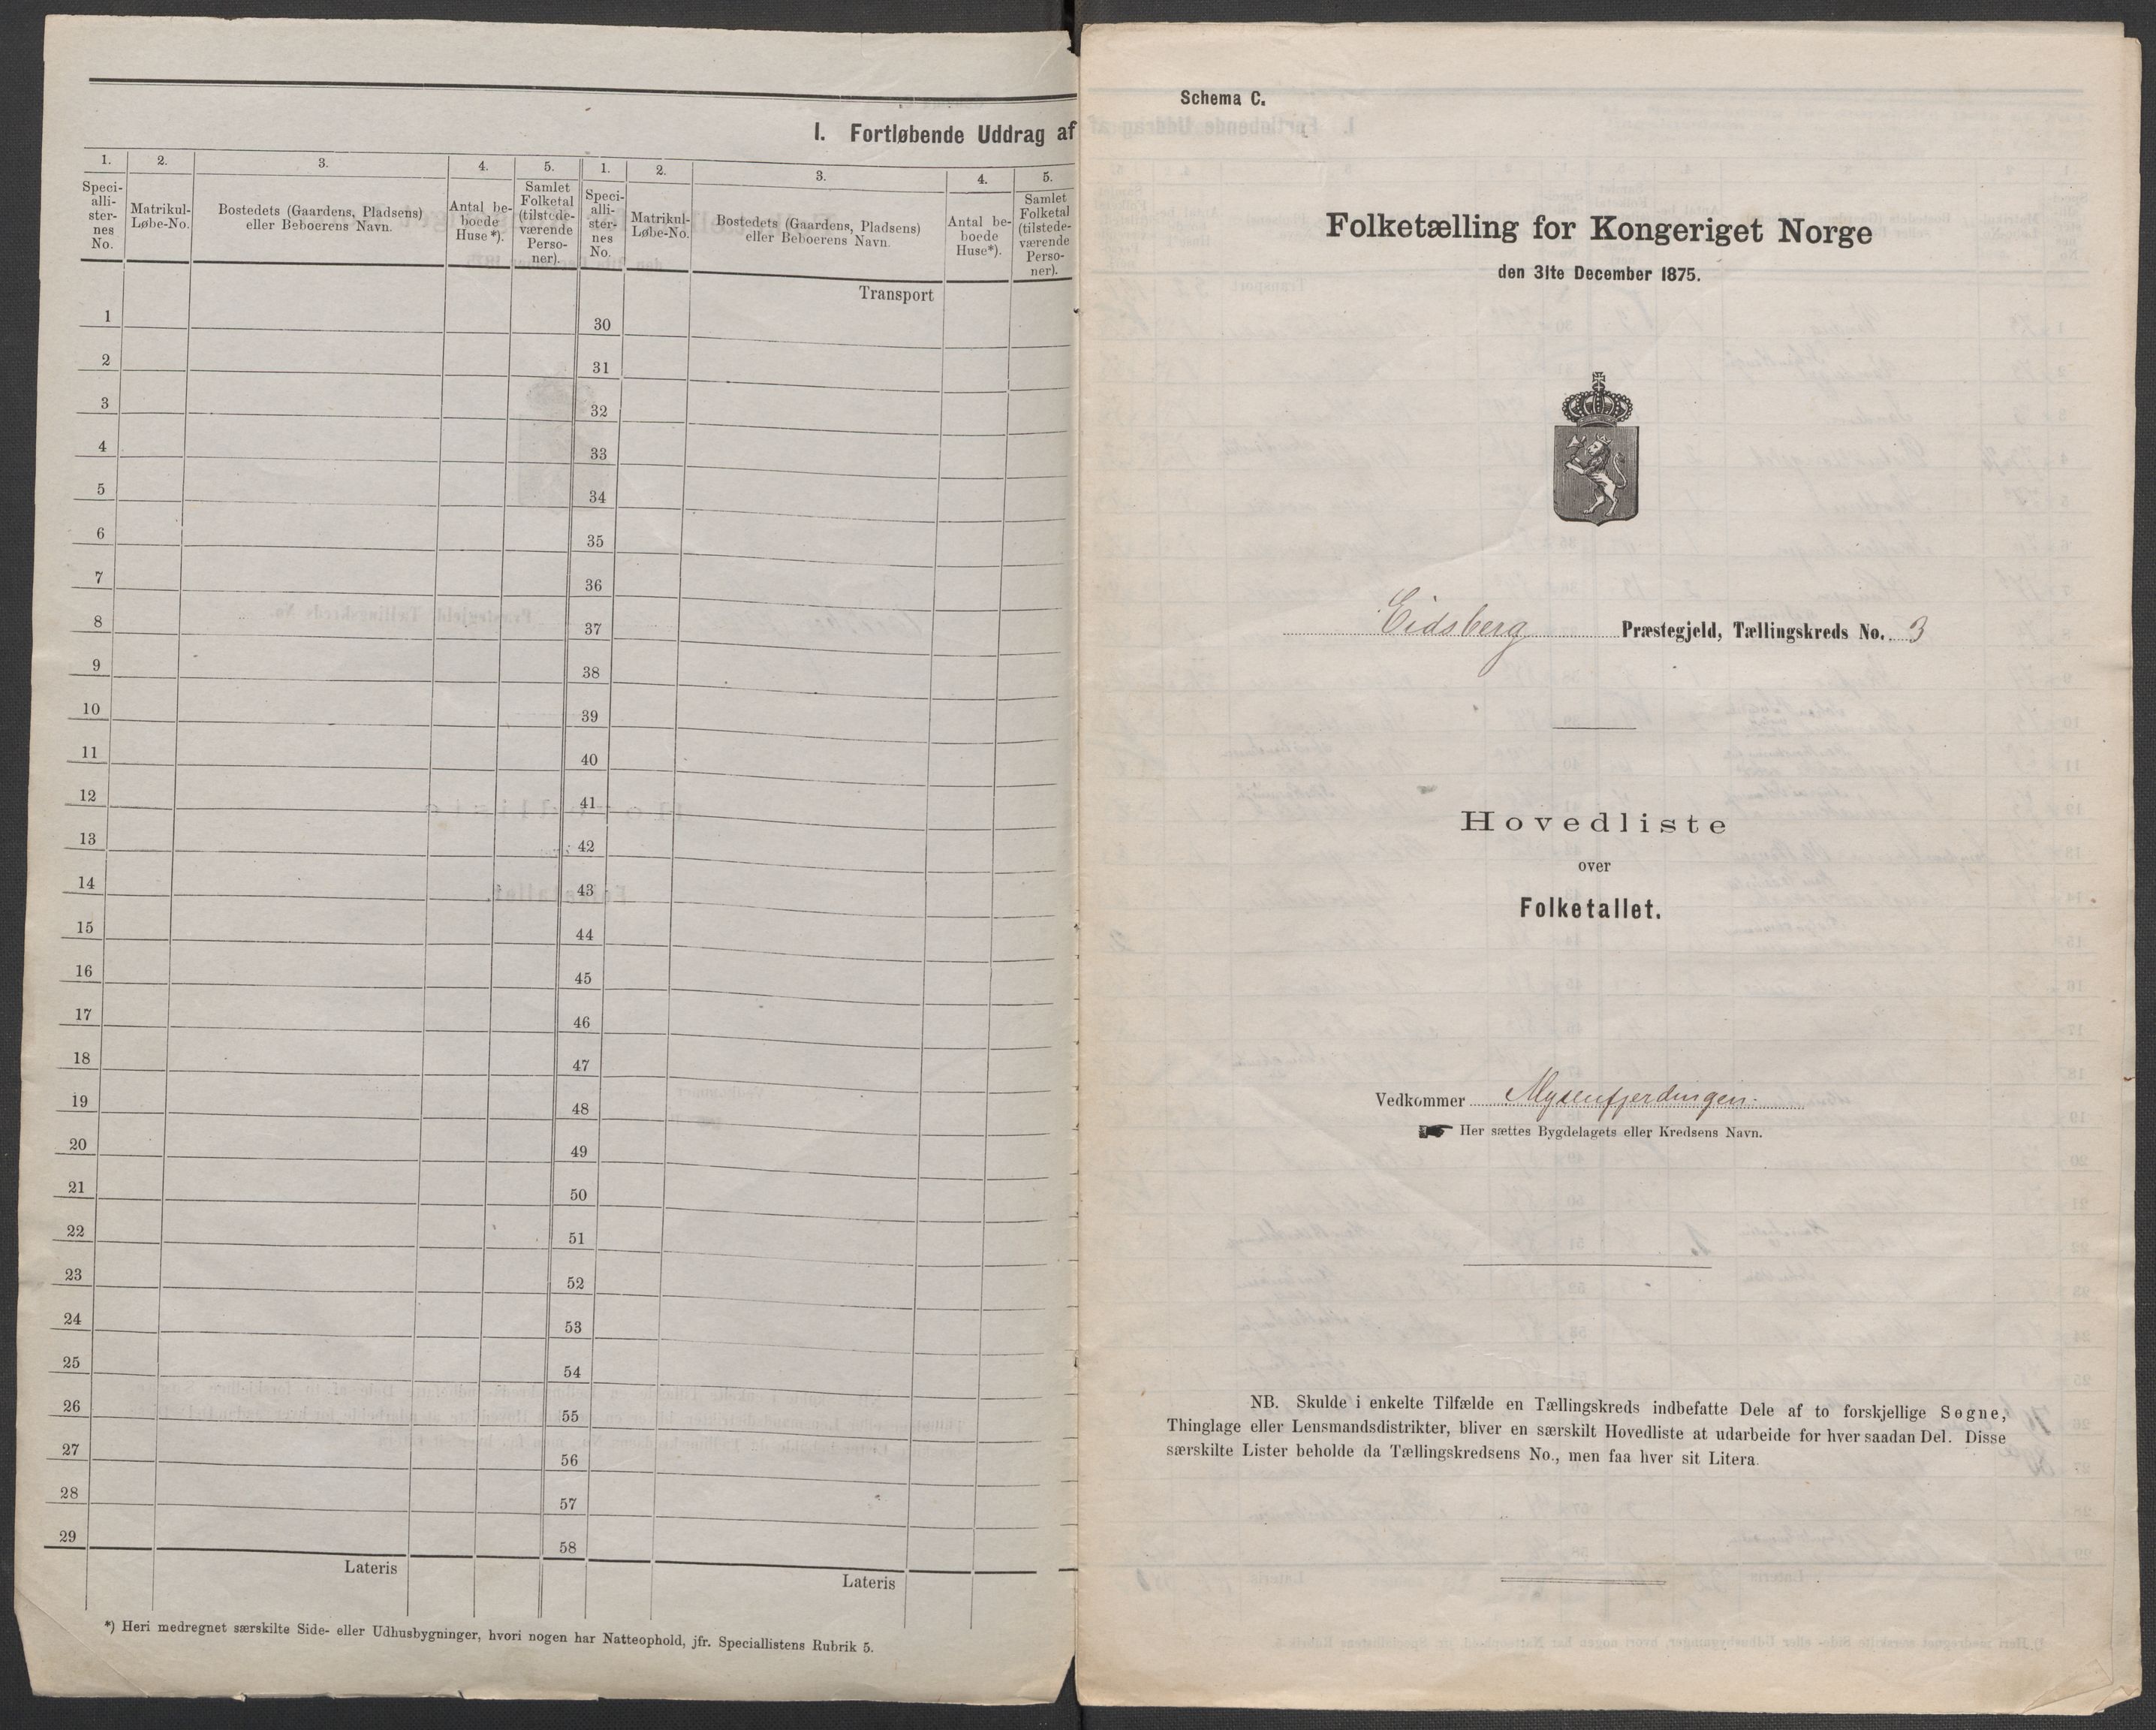 I. Fortløbende Uddrag af
1.
2.
3.
4.
5.
1.
2.
3.
4.
5.
Speci-
alli-
ster-
nes
No.
Matrikul-
Løbe-No.
Bostedets (Gaardens, Pladsens)
eller Beboerens Navn.
Antal be-
boede
Huse*).
Samlet
Folketal
(tilstede-
værende
Perso-
ner).
Speci-
alli-
ster-
nes
No.
Matrikul-
Løbe-No.
Bostedets (Gaardens, Pladsens)
eller Beboerens Navn.
Antal be-
boede
Huse*).
Samlet
Folketal
(tilstede-
værende
Perso-
ner).
Transport
1
30
2
31
3
32
4
33
5
34
6
35
7
36
8
37
9
38
10
39
11
40
12
41
13
42
14
43
15
44
16
45
17
46
18
47
19
48
20
49
21
50
22
51
23
52
24
53
25
54
26
55
27
56
28
57
29
58
Lateris
Lateris
*) Heri medregnet særskilte Side- eller Udhusbygninger, hvori nogen har Natteophold, jfr. Speciallistens Rubrik 5.
Schema C.
Folketælling for Kongeriget Norge
den 31te December 1875.
Eidsberg Præstegjeld, Tællingskreds No. 3
Hovedliste
over
Folketallet.
Vedkommer Mysenfjerdingen.
Her sættes Bygdelagets eller Kredsens Navn.
NB. Skulde i enkelte Tilfælde en Tællingskreds indbefatte Dele af to forskjellige Sogne,
Thinglage eller Lensmandsdistrikter, bliver en særskilt Hovedliste at udarbeide for hver saadan Del. Disse
særskilte Lister beholde da Tællingskredsens No., men faa hver sit Litera.